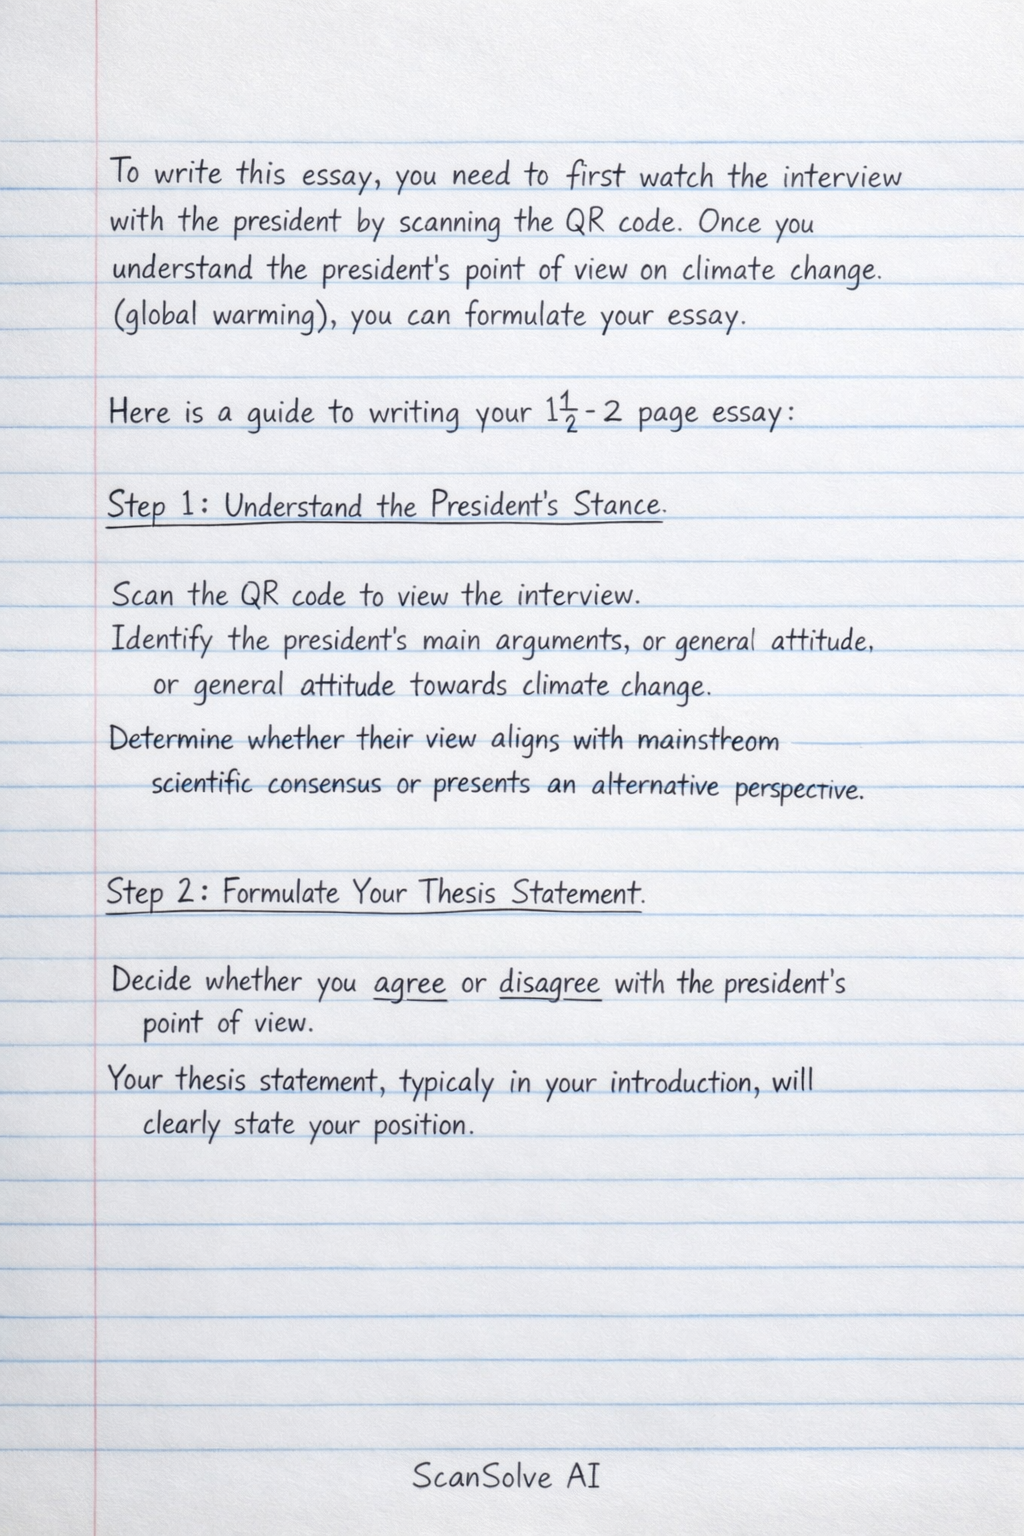 To write this essay, you need to first watch the interview
with the president by scanning the QR code. Once you
understand the president's point of view on climate change.
(global warming), you can formulate your essay.
Here is a guide to writing your 1½-2 page essay:
Step 1: Understand the President's Stance.
Scan the QR code to view the interview.
Identify the president's main arguments, or general attitude,
or general attitude towards climate change.
Determine whether their view aligns with mainstreom
scientific consensus or presents an alternative perspective.
Step 2: Formulate Your Thesis Statement.
Decide whether you agree or disagree with the president's
point of view.
Your thesis statement, typicaly in your introduction, will
clearly state your position.
ScanSolve AI